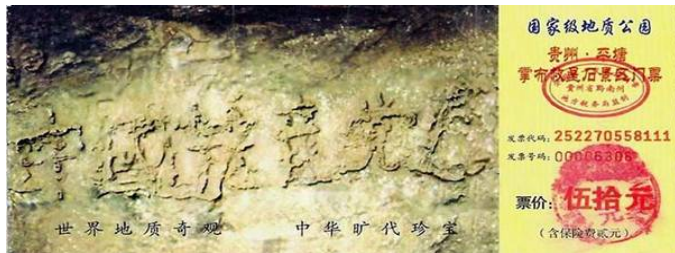 中國共产党亡
世界地质奇观 中华旷代珍宝
国家级地质公园
贵州·平塘
掌布藏字石景区门票
贵州省黔南州
地方税务局监制
发票代码: 252270558111
发票号码: 00006306
票价: 伍拾元
(含保险费贰元)